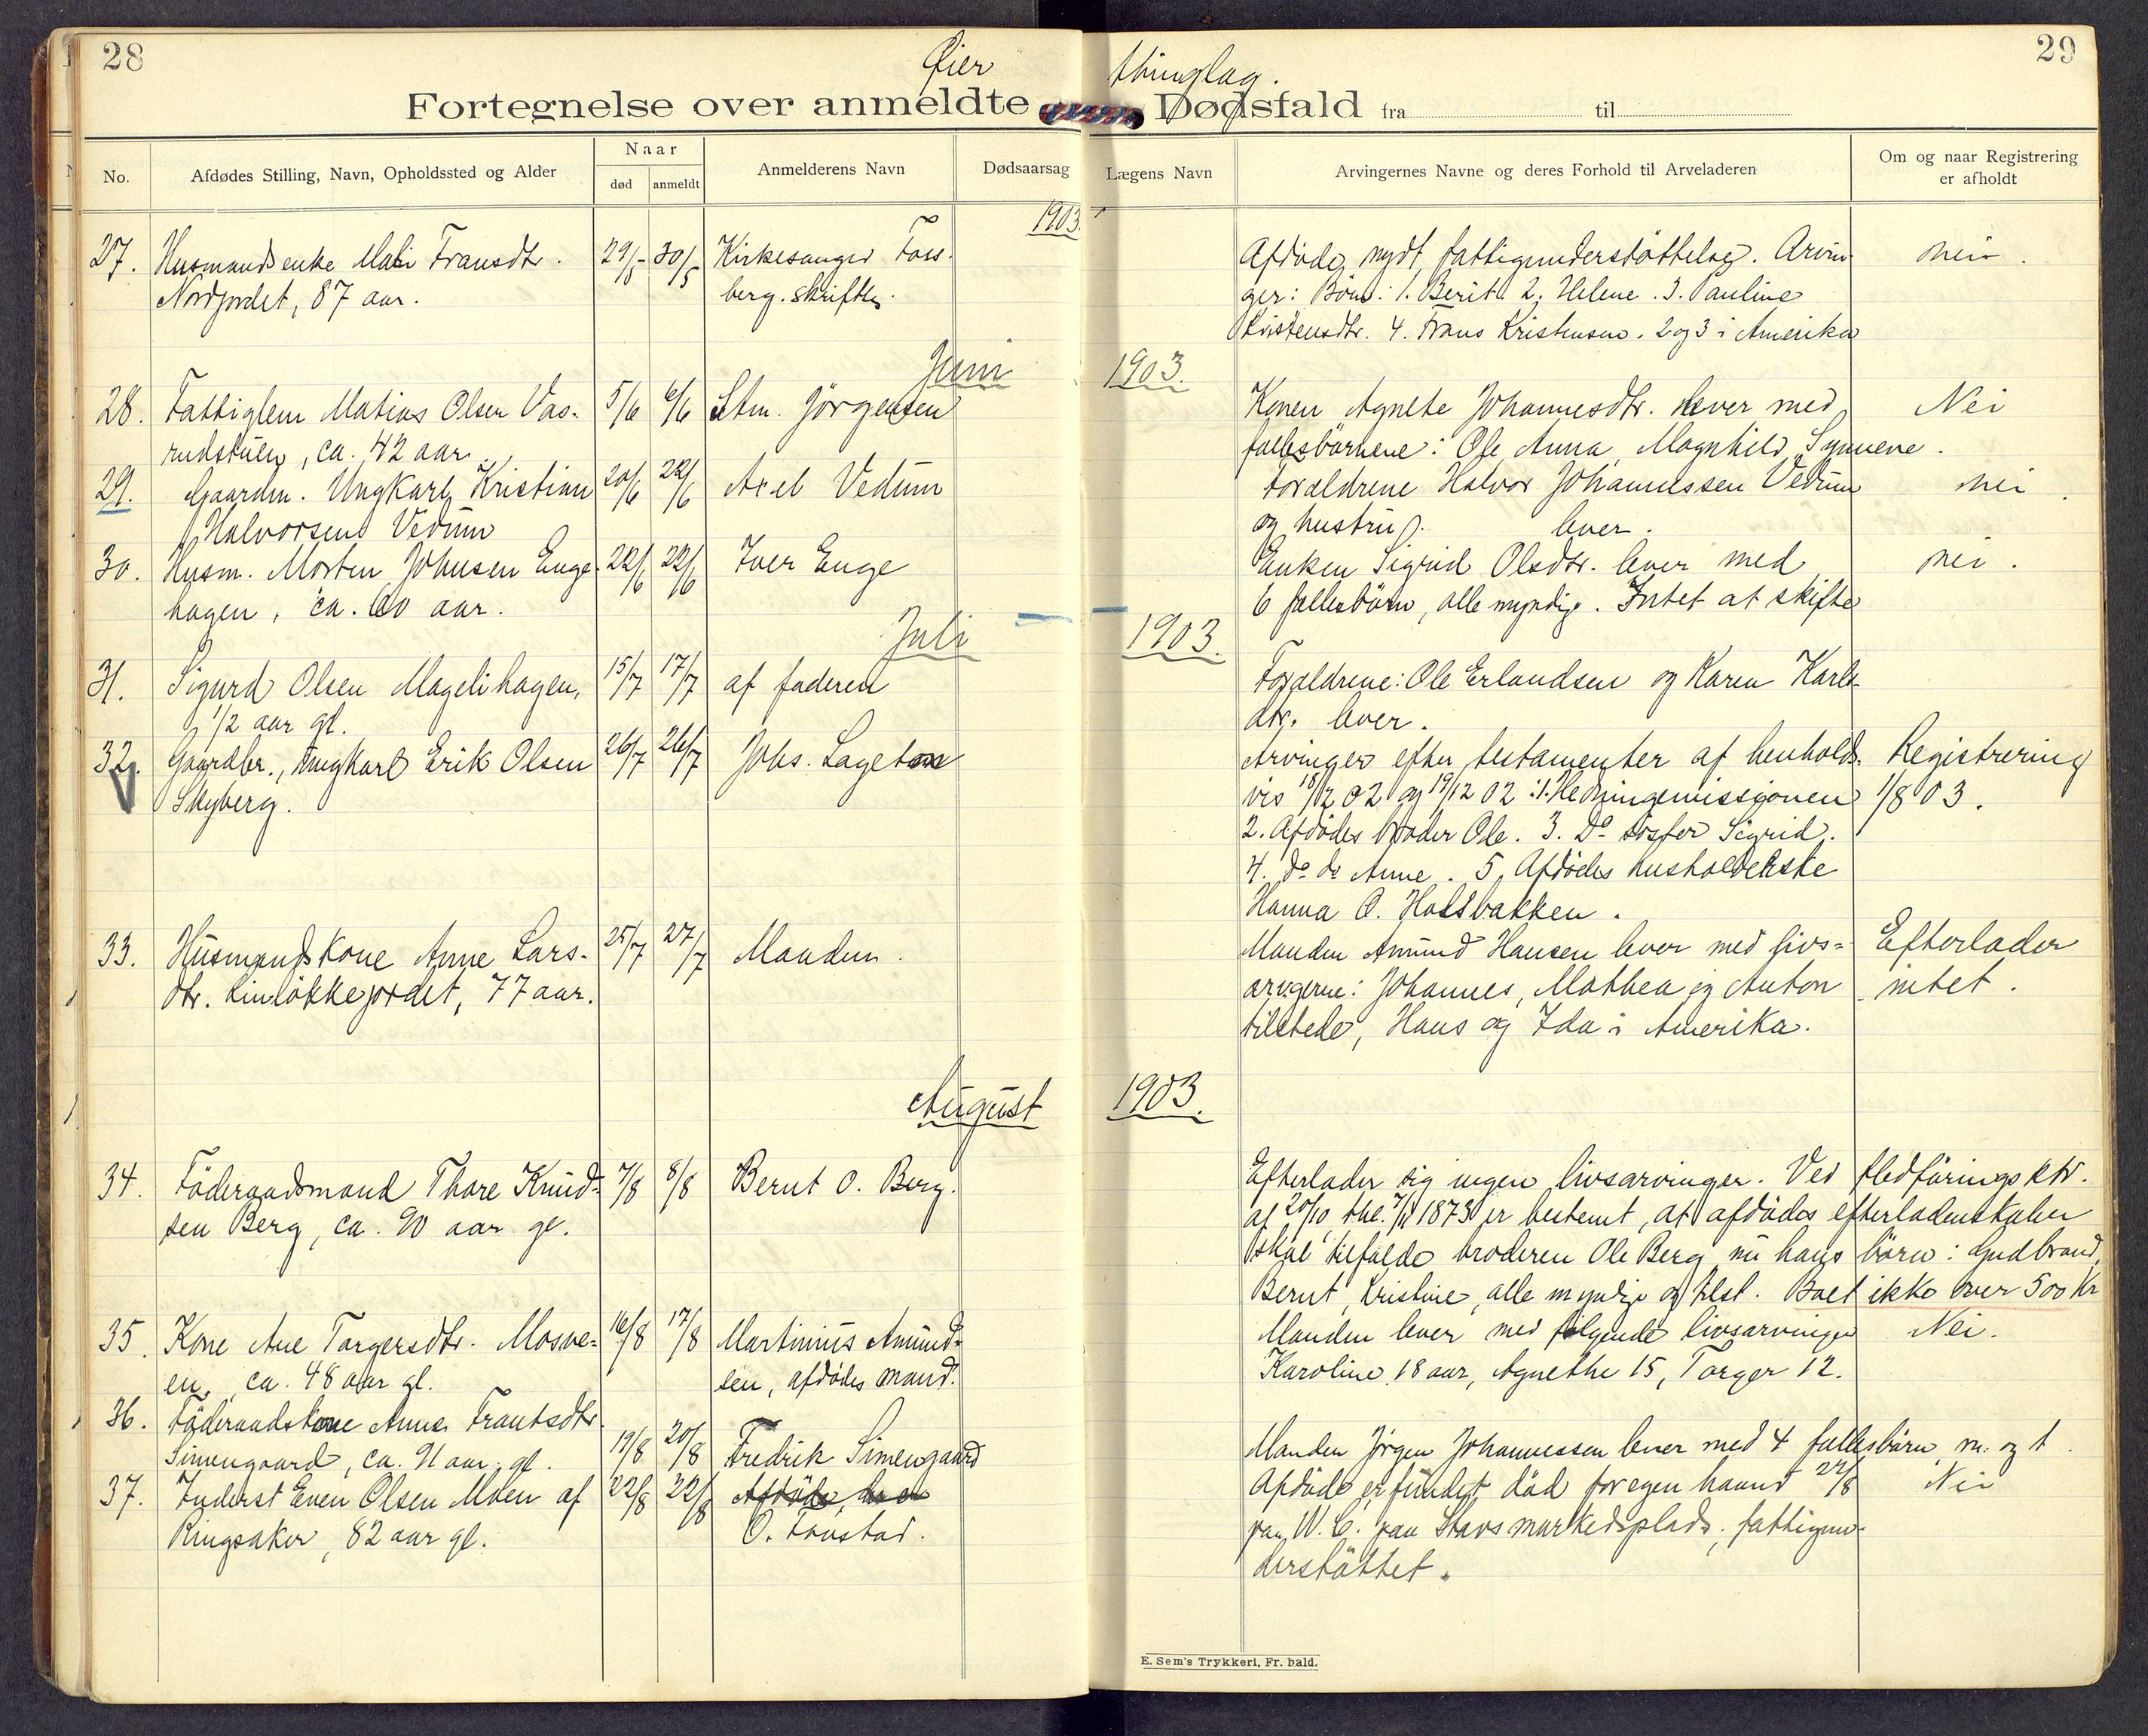 28
29
Øier thinglag.
Fortegnelse over anmeldte Dødsfald fra til
No.
Afdødes Stilling, Navn, Opholdssted og Alder
Naar
død
anmeldt
Anmelderens Navn
Dødsaarsag
Lægens Navn
Arvingernes Navne og deres Forhold til Arveladeren
Om og naar Registrering
er afholdt
1903
27. Husmandsenke Mari Fransdtr. 29/5 30/5 Kirkesanger Foss- Afdøde nydt fattigunderstøttelse. Arvin- nei.
Nordjordet, 87 aar. berg. skriftlig. ger: Børn: 1. Berit. 2. Helene. 3. Pauline
Kristensdtr. 4. Frans Kristensen. 2 og 3 i Amerika
Juni 1903.
28. Fattiglem Matias Olsen Vas- 5/6 6/6 Jørgensen Konen Agnete Johannesdtr. lever med Nei
rudstuen, ca. 42 aar. fællesbørnene: Ole, Anna, Magnhild, Synnene.
29. Gaardm. Ungkarl Kristian 20/6 22/6 Axel Vedum Forældrene Halvor Johannessen Vedum nei.
Halvorsen Vedum og hustru lever.
30. Husm. Morten Johnsen Enge- 22/6 22/6 Iver Enge Enken Sigrid Olsdtr. lever med nei.
hagen, ca. 60 aar. 6 fællesbørn, alle myndige. Intet at skifte
Juli 1903.
31. Sigurd Olsen Magelihagen, 15/7 17/7 af faderen Forældrene: Ole Erlandsen og Karen Karls-
1/2 aar gl. dtr. lever.
32. Gaardbr., ungkarl Erik Olsen 26/7 26/7 Johs. Lageton Arvinger efter testamenter af henholds- Registrering
Skyberg. vis 18/7 02 og 19/12 02: 1. Hedningemissionen 1/8 03.
2. Afdødes broder Ole. 3. Do søster Sigrid.
4. do do Anne. 5. Afdødes husholderske
Hanna O. Holsbakken.
33. Husmandskone Anne Lars- 25/7 27/7 Manden. Manden Amund Hansen lever med livs- Efterlader
dtr. Linløkkejordet, 77 aar. arvgerne: Johannes, Mathea og Anton intet.
tilstede, Hans og Ida i Amerika.
August 1903.
34. Føderaadsmand Thore Knud- 7/8 8/8 Bernt O. Berg. Efterlader sig ingen livsarvinger. Ved fledføringsktr.
sen Berg, ca. 90 aar gl. af 20/10 thl. 7/11 1873 er bestemt, at afdødes efterladenskaber
skal tilfalde broderen Ole Berg nu hans børn: Gudbrand,
Bernt, Kristine, alle myndige og tilst. Boet ikke over 500 Kr
35. Kone Ane Torgersdtr. Mosve- 16/8 17/8 Martinius Amund- Manden lever med følgende livsarvinger Nei.
en, ca. 48 aar gl. sen, afdødes mand. Karoline 18 aar, Agnethe 15, Torger 12.
36. Føderaadskone Anne Frantsdtr.
Simengaard, ca. 91 aar gl. 19/8 20/8 Fredrik Simengaard Manden Jørgen Johannessen lever med 4 fællesbørn, m. og t.
37. Inderst Even Olsen Moen af 22/8 22/8 Afdøde er fundet død for egen haand 22/8 Nei
Ringsaker, 82 aar gl. O. Tovstad. paa W. C. paa Stavs markedsplads. fattigun-
derstøttet.
E. Sem's Trykkeri, Fr.hald.